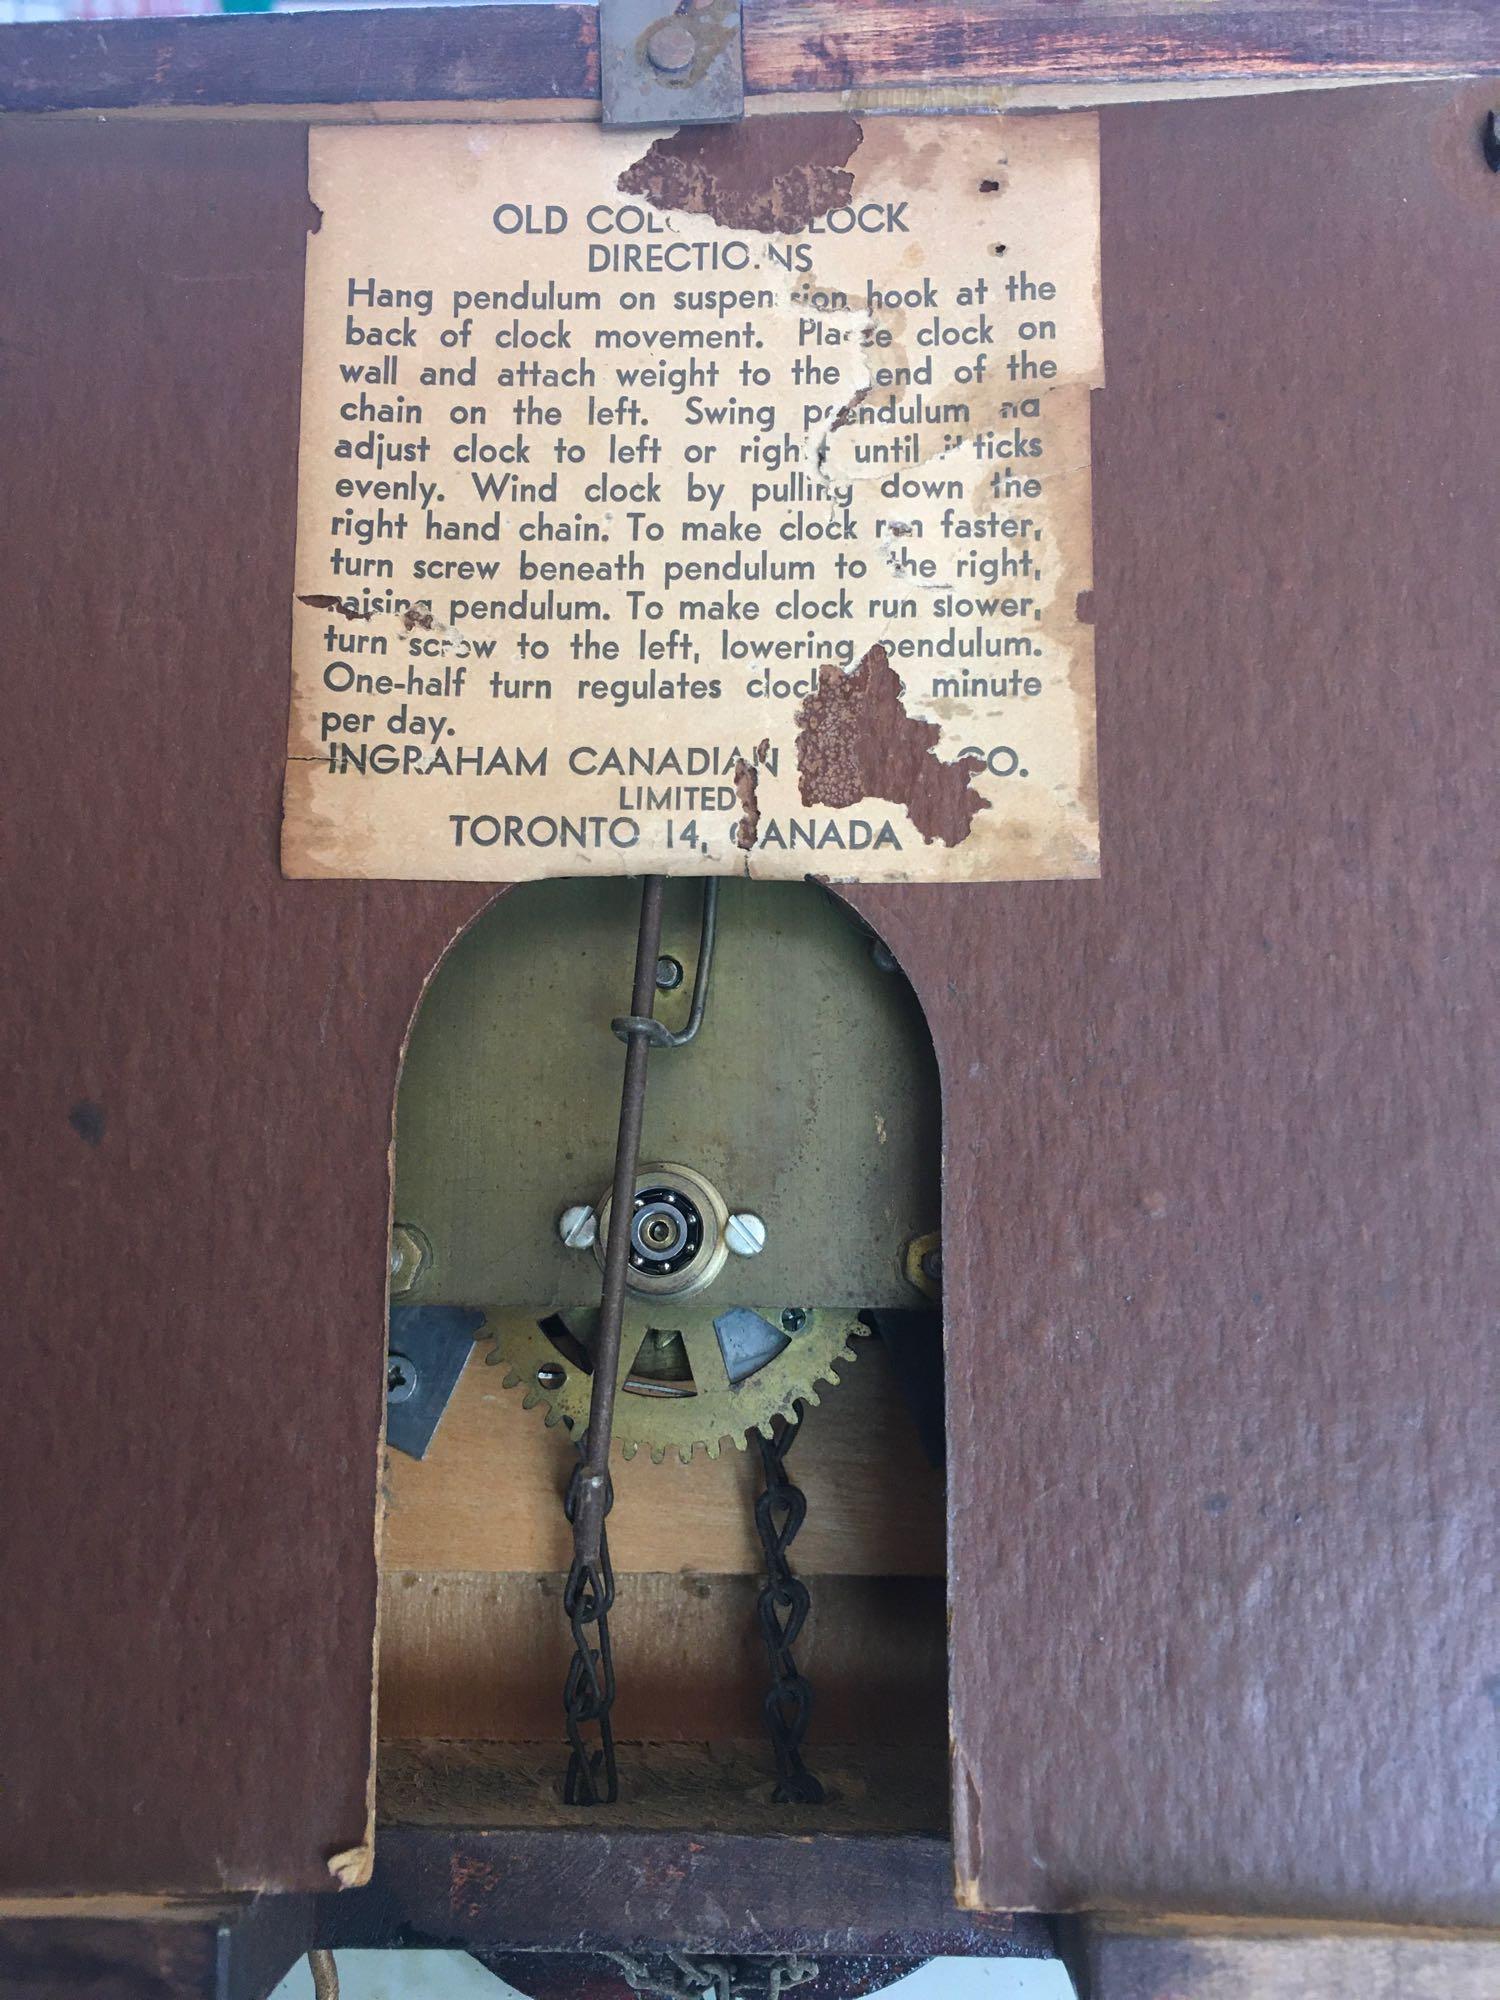 OLD COL LOCK
DIRECTIONS
Hang pendulum on suspension hook at the
back of clock movement. Place clock on
wall and attach weight to the end of the
chain on the left. Swing pendulum
adjust clock to left or right until it ticks
evenly. Wind clock by pulling down the
right hand chain. To make clock run faster,
turn screw beneath pendulum to the right,
raising pendulum. To make clock run slower,
turn screw to the left, lowering pendulum.
One-half turn regulates clock minute
per day.
INGRAHAM CANADIAN CO.
LIMITED
TORONTO 14, CANADA